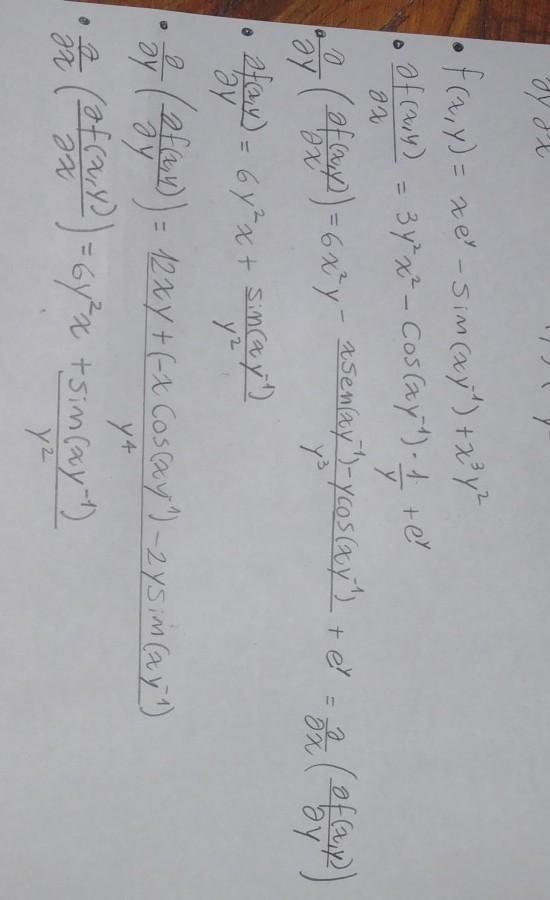 ∂y∂x
• f(x,y) = xe^y − sin(xy^-1) + x^3y^2
• ∂f(x,y)/∂x = 3y^2x^2 − cos(xy^-1)·1/y + e^y
• ∂/∂y (∂f(x,y)/∂x) = 6x^2y − (xsen(xy^-1) − ycos(xy^-1))/y^3 + e^y = ∂/∂x (∂f(x,y)/∂y)
• ∂f(x,y)/∂y = 6y^2x + sin(xy^-1)/y^2
• ∂/∂y (∂f(x,y)/∂y) = (12xy + (−xcos(xy^-1) − 2ysin(xy^-1))/y^4
• ∂/∂x (∂f(x,y)/∂x) = 6y^2x + sin(xy^-1)/y^2